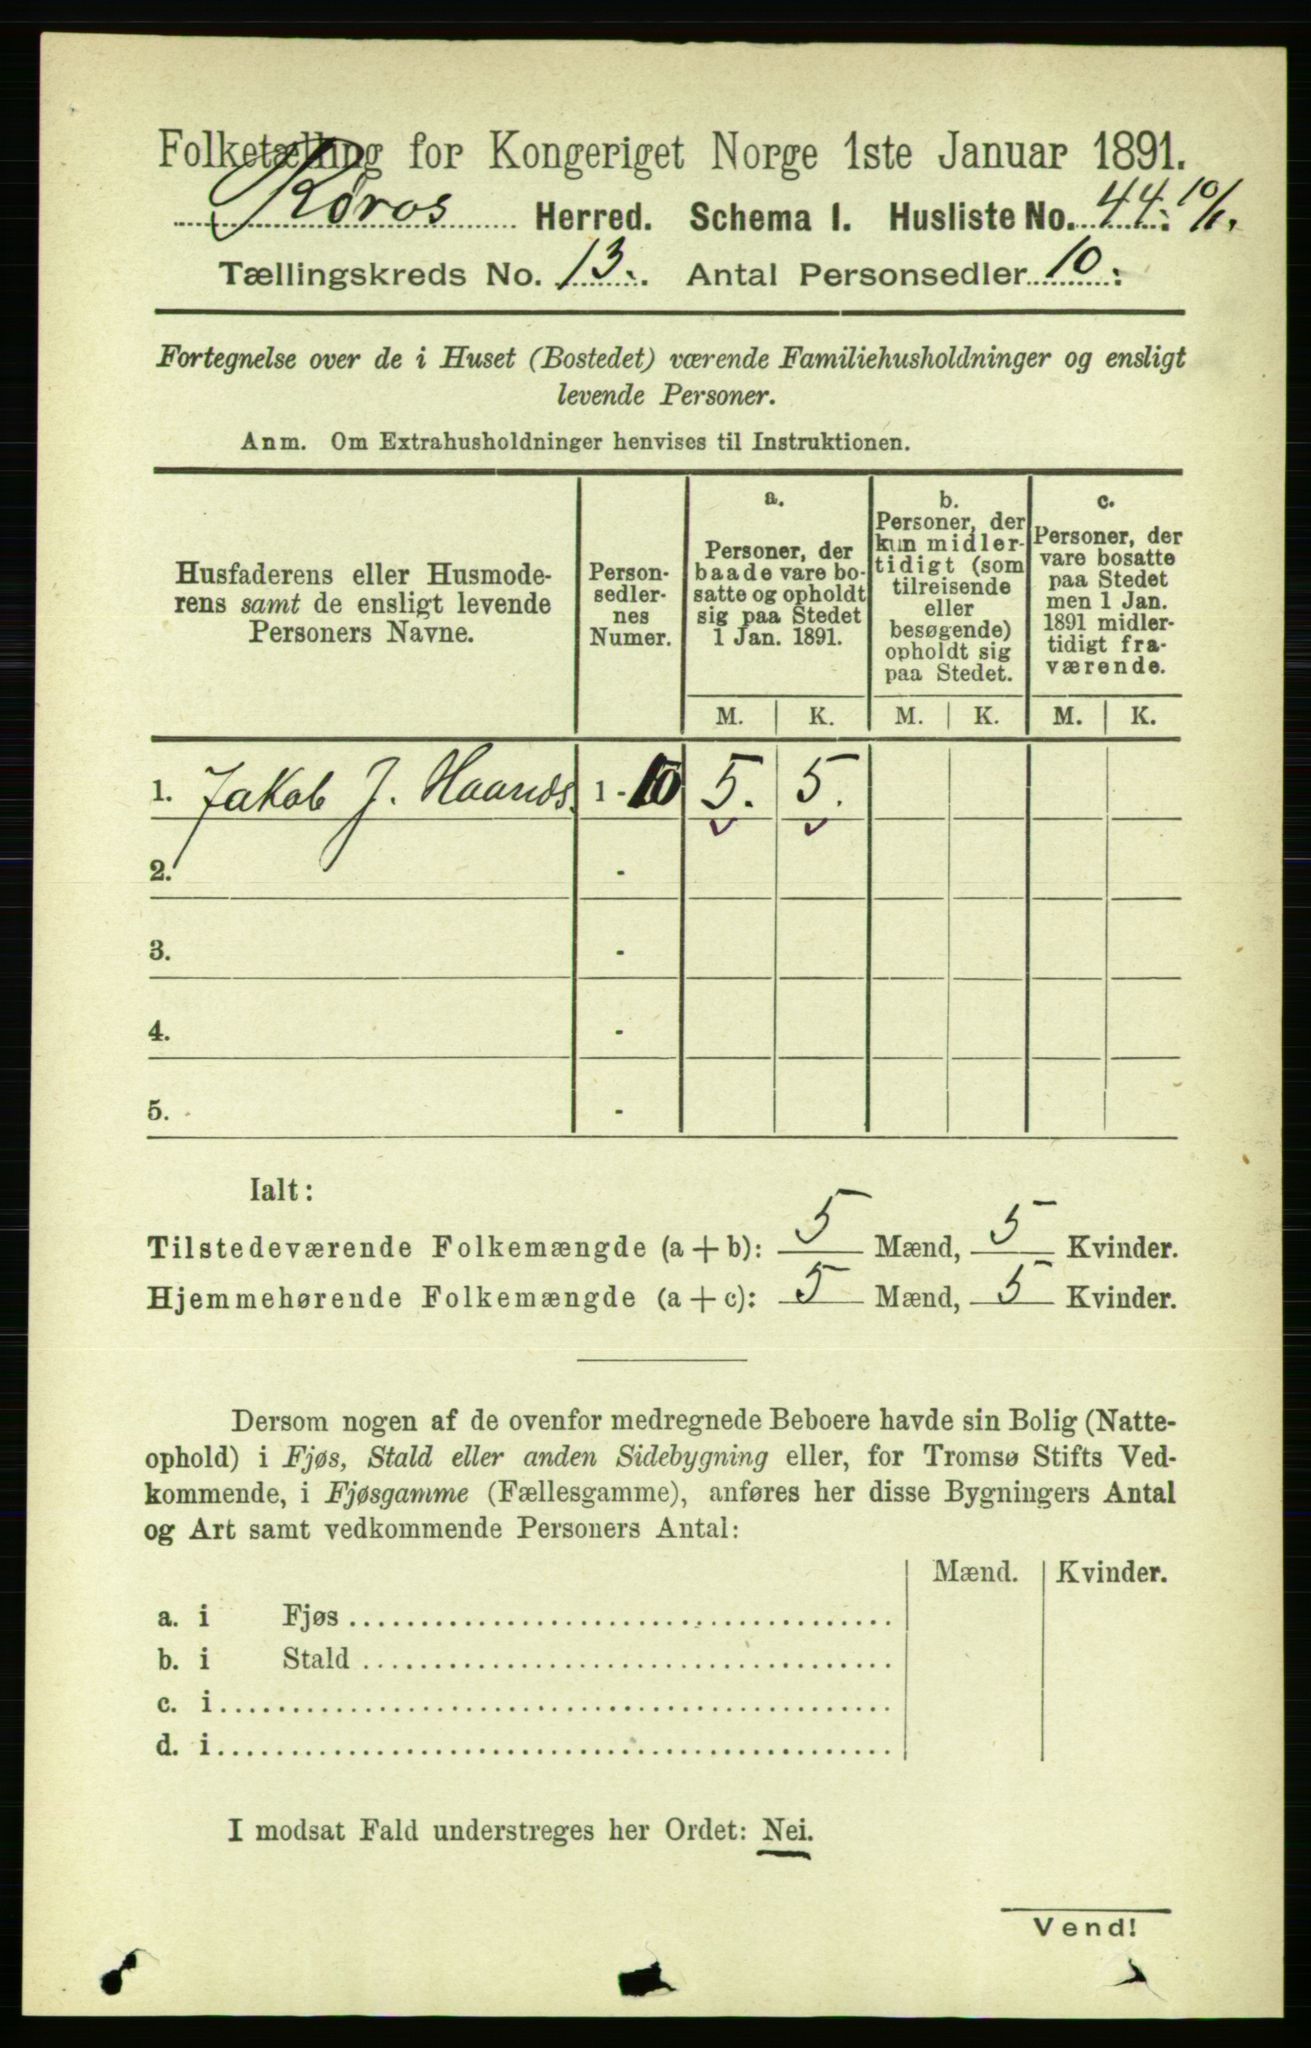 Folketælling for Kongeriget Norge 1ste Januar 1891.
Røros Herred. Schema 1. Husliste No. 44: 10/1.
Tællingskreds No. 13. Antal Personsedler 10:
Fortegnelse over de i Huset (Bostedet) værende Familiehusholdninger og ensligt
levende Personer.
Anm. Om Extrahusholdninger henvises til Instruktionen.
Husfaderens eller Husmode-
rens samt de ensligt levende
Personers Navne.
Person-
sedler-
nes
Numer.
a.
Personer, der
baade vare bo-
satte og opholdt
sig paa Stedet
1 Jan. 1891.
b.
Personer, der
kun midler-
tidigt (som
tilreisende
eller
besøgende)
opholdt sig
paa Stedet.
c.
Personer, der
vare bosatte
paa Stedet
men 1 Jan.
1891 midler-
tidigt fra-
værende.
M. K. M. K. M. K.
1. Jakob J. 1 - 10 5. 5.
2. -
3. -
4. -
5. -
Ialt:
Tilstedeværende Folkemængde (a + b): 5 Mænd, 5 Kvinder.
Hjemmehørende Folkemængde (a + c): 5 Mænd, 5 Kvinder.
Dersom nogen af de ovenfor medregnede Beboere havde sin Bolig (Natte-
ophold) i Fjøs, Stald eller anden Sidebygning eller, for Tromsø Stifts Ved-
kommende, i Fjøsgamme (Fællesgamme), anføres her disse Bygningers Antal
og Art samt vedkommende Personers Antal:
Mænd. Kvinder.
a. i Fjøs
b. i Stald
c. i
d. i
I modsat Fald understreges her Ordet: Nei.
Vend!